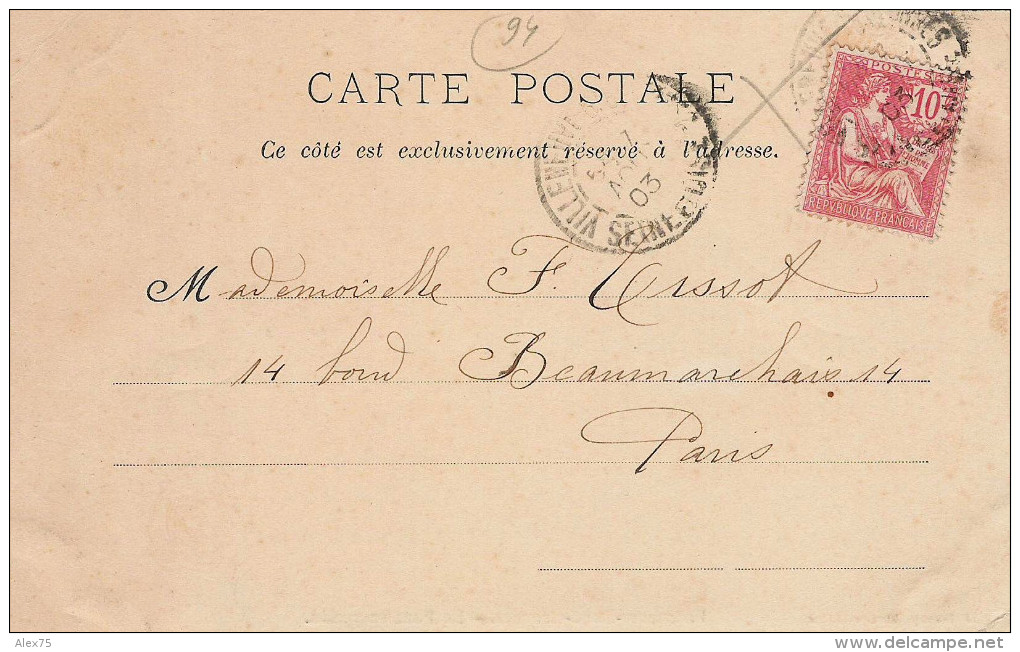 94
CARTE POSTALE
Ce côté est exclusivement réservé à l'adresse.
POSTES
10
REPVBLIQVE FRANÇAISE
VILLENEUVE
AOUT
03
SEINE
Mademoiselle F. Tissot
14 boud Beaumarchais 14
Paris
Alex75
www.delcampe.net